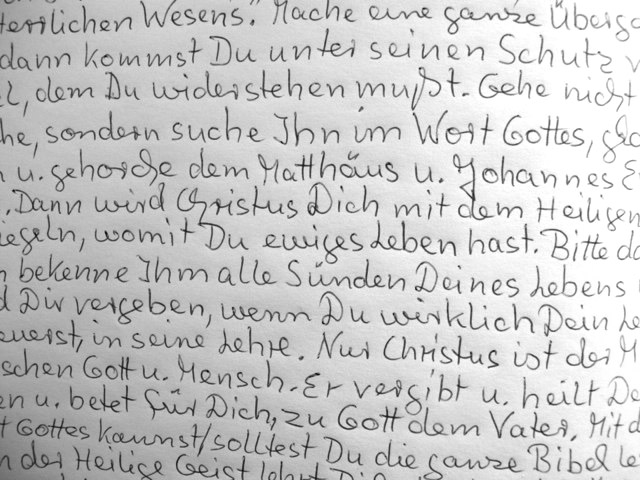 terlichen Wesens. Mache eine ganze Überg
dann kommst Du unter seinen Schutz v
el, dem Du widerstehen mußt. Gehe nicht
he, sondern suche Ihn im Wort Gottes, gla
n u. gehorche dem Matthäus u. Johannes E
. Dann wird Christus Dich mit dem Heiligen
iegeln, womit Du ewiges Leben hast. Bitte da
n bekenne Ihm alle Sünden Deines Lebens
d Dir vergeben, wenn Du wirklich Dein Le
euerst, in seine Lehre. Nur Christus ist der M
schen Gott u. Mensch. Er vergibt u. heilt De
en u. betet für Dich, zu Gott dem Vater. Mit d
t Gottes kannst/solltest Du die ganze Bibel le
n der Heilige Geist lehrt Di